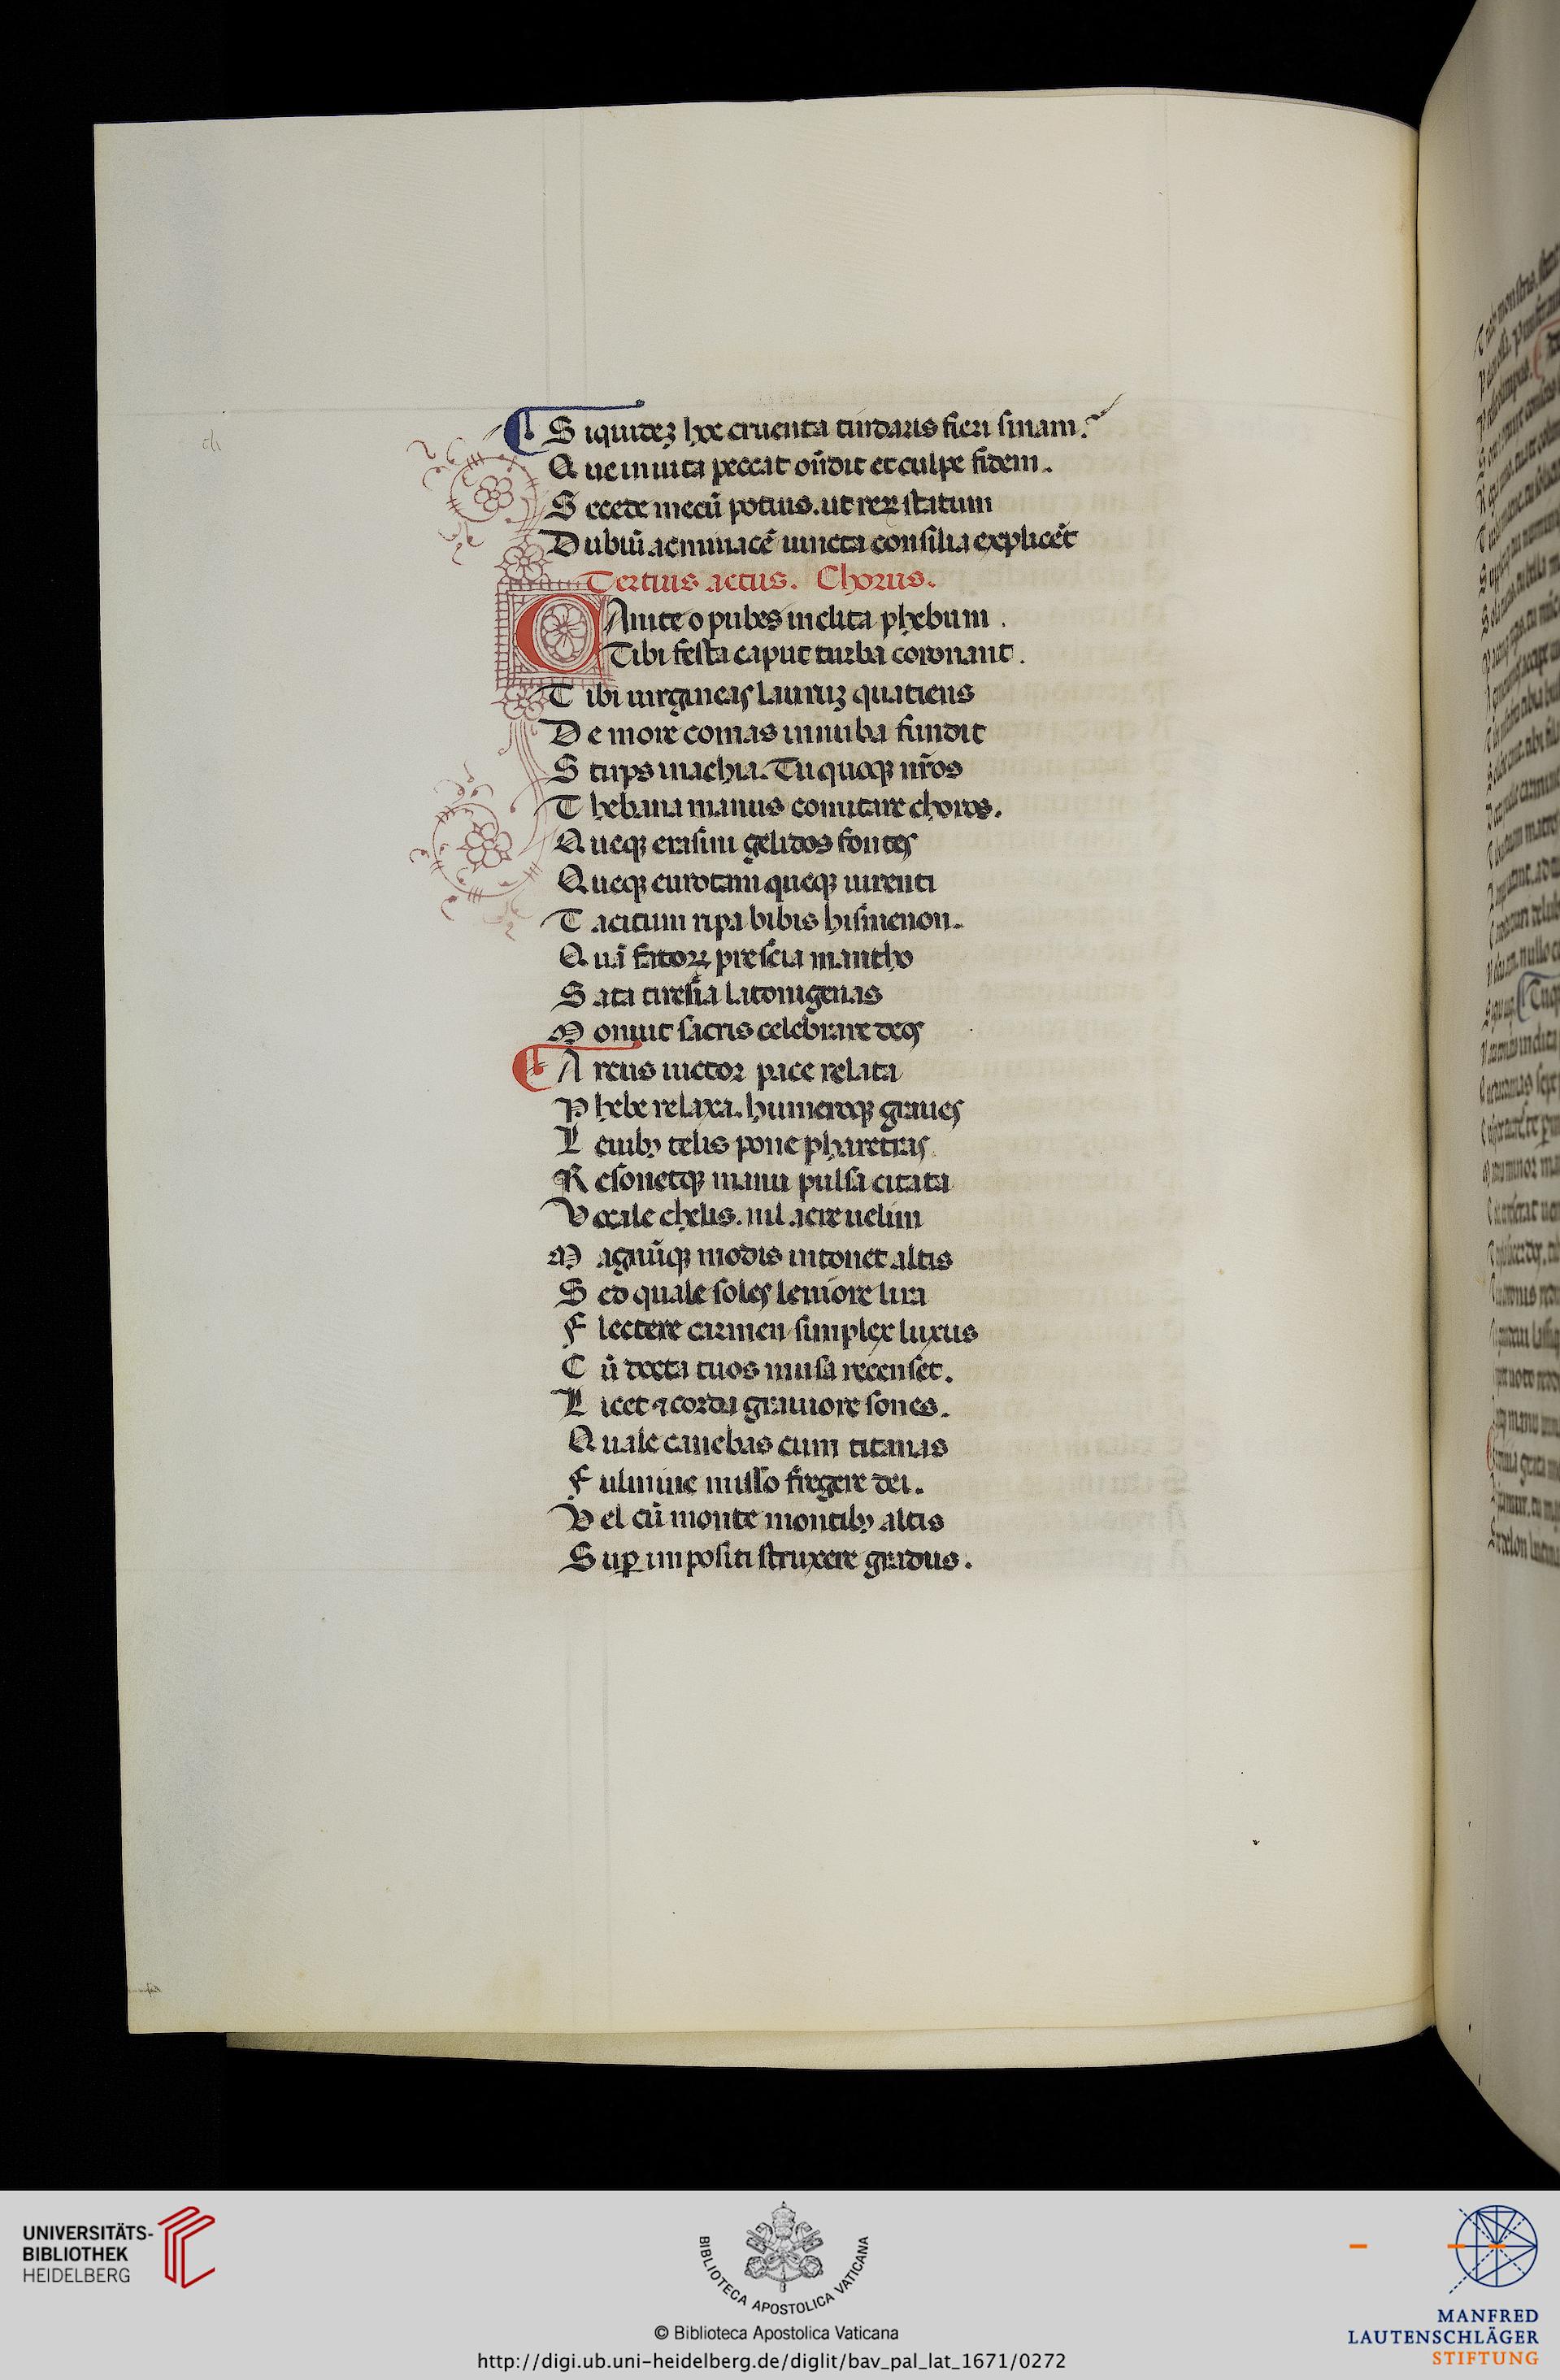 S iquidez hoc cruenta tindaris fieri sinam.
Q ue iniuita peccat oñdit et culpe fidem.
S ecede mecũ potius. ut reꝝ statum
D ubiũ ac minacẽ iuncta consilia explicẽt
Tertius actus. Chorus.
CAnite o pubes inclita phebum .
Tibi festa caput turba coronant .
T ibi uirgineas lauruz quatiens
D e more comas innuba fundit
S tirps inachia. Tu quoqꝫ nr̃os
T hebana manus comitare choros.
Q ueqꝫ erasini gelidos fontes
Q ueqꝫ eurotam queqꝫ uirenti
T acitum ripa bibis hismenon.
Q uã fatoꝝ prescia mantho
S ata tiresia latonigenas
M onuit sacris celebrare deos
A rcus uictor pace relata
P hebe relaxa. humeroqꝫ graues
L euibꝫ telis pone pharetras
R esonetqꝫ manu pulsa citata
V ocale chelis. nil acre uelim
M agnũqꝫ modis intonet altis
S ed quale soles leuiore lira
F lectere carmen simplex luxus
C ũ docta tuos musa recenset.
L icet ⁊ corda grauiore sones.
Q uale canebas cum titanas
F ulmine misso fregere dei.
V el cũ monte montibꝫ altis
S uꝑ impositi struxere gradus.
UNIVERSITÄTS-
BIBLIOTHEK
HEIDELBERG
BIBLIOTECA APOSTOLICA VATICANA
© Biblioteca Apostolica Vaticana
http://digi.ub.uni-heidelberg.de/diglit/bav_pal_lat_1671/0272
MANFRED
LAUTENSCHLÄGER
STIFTUNG